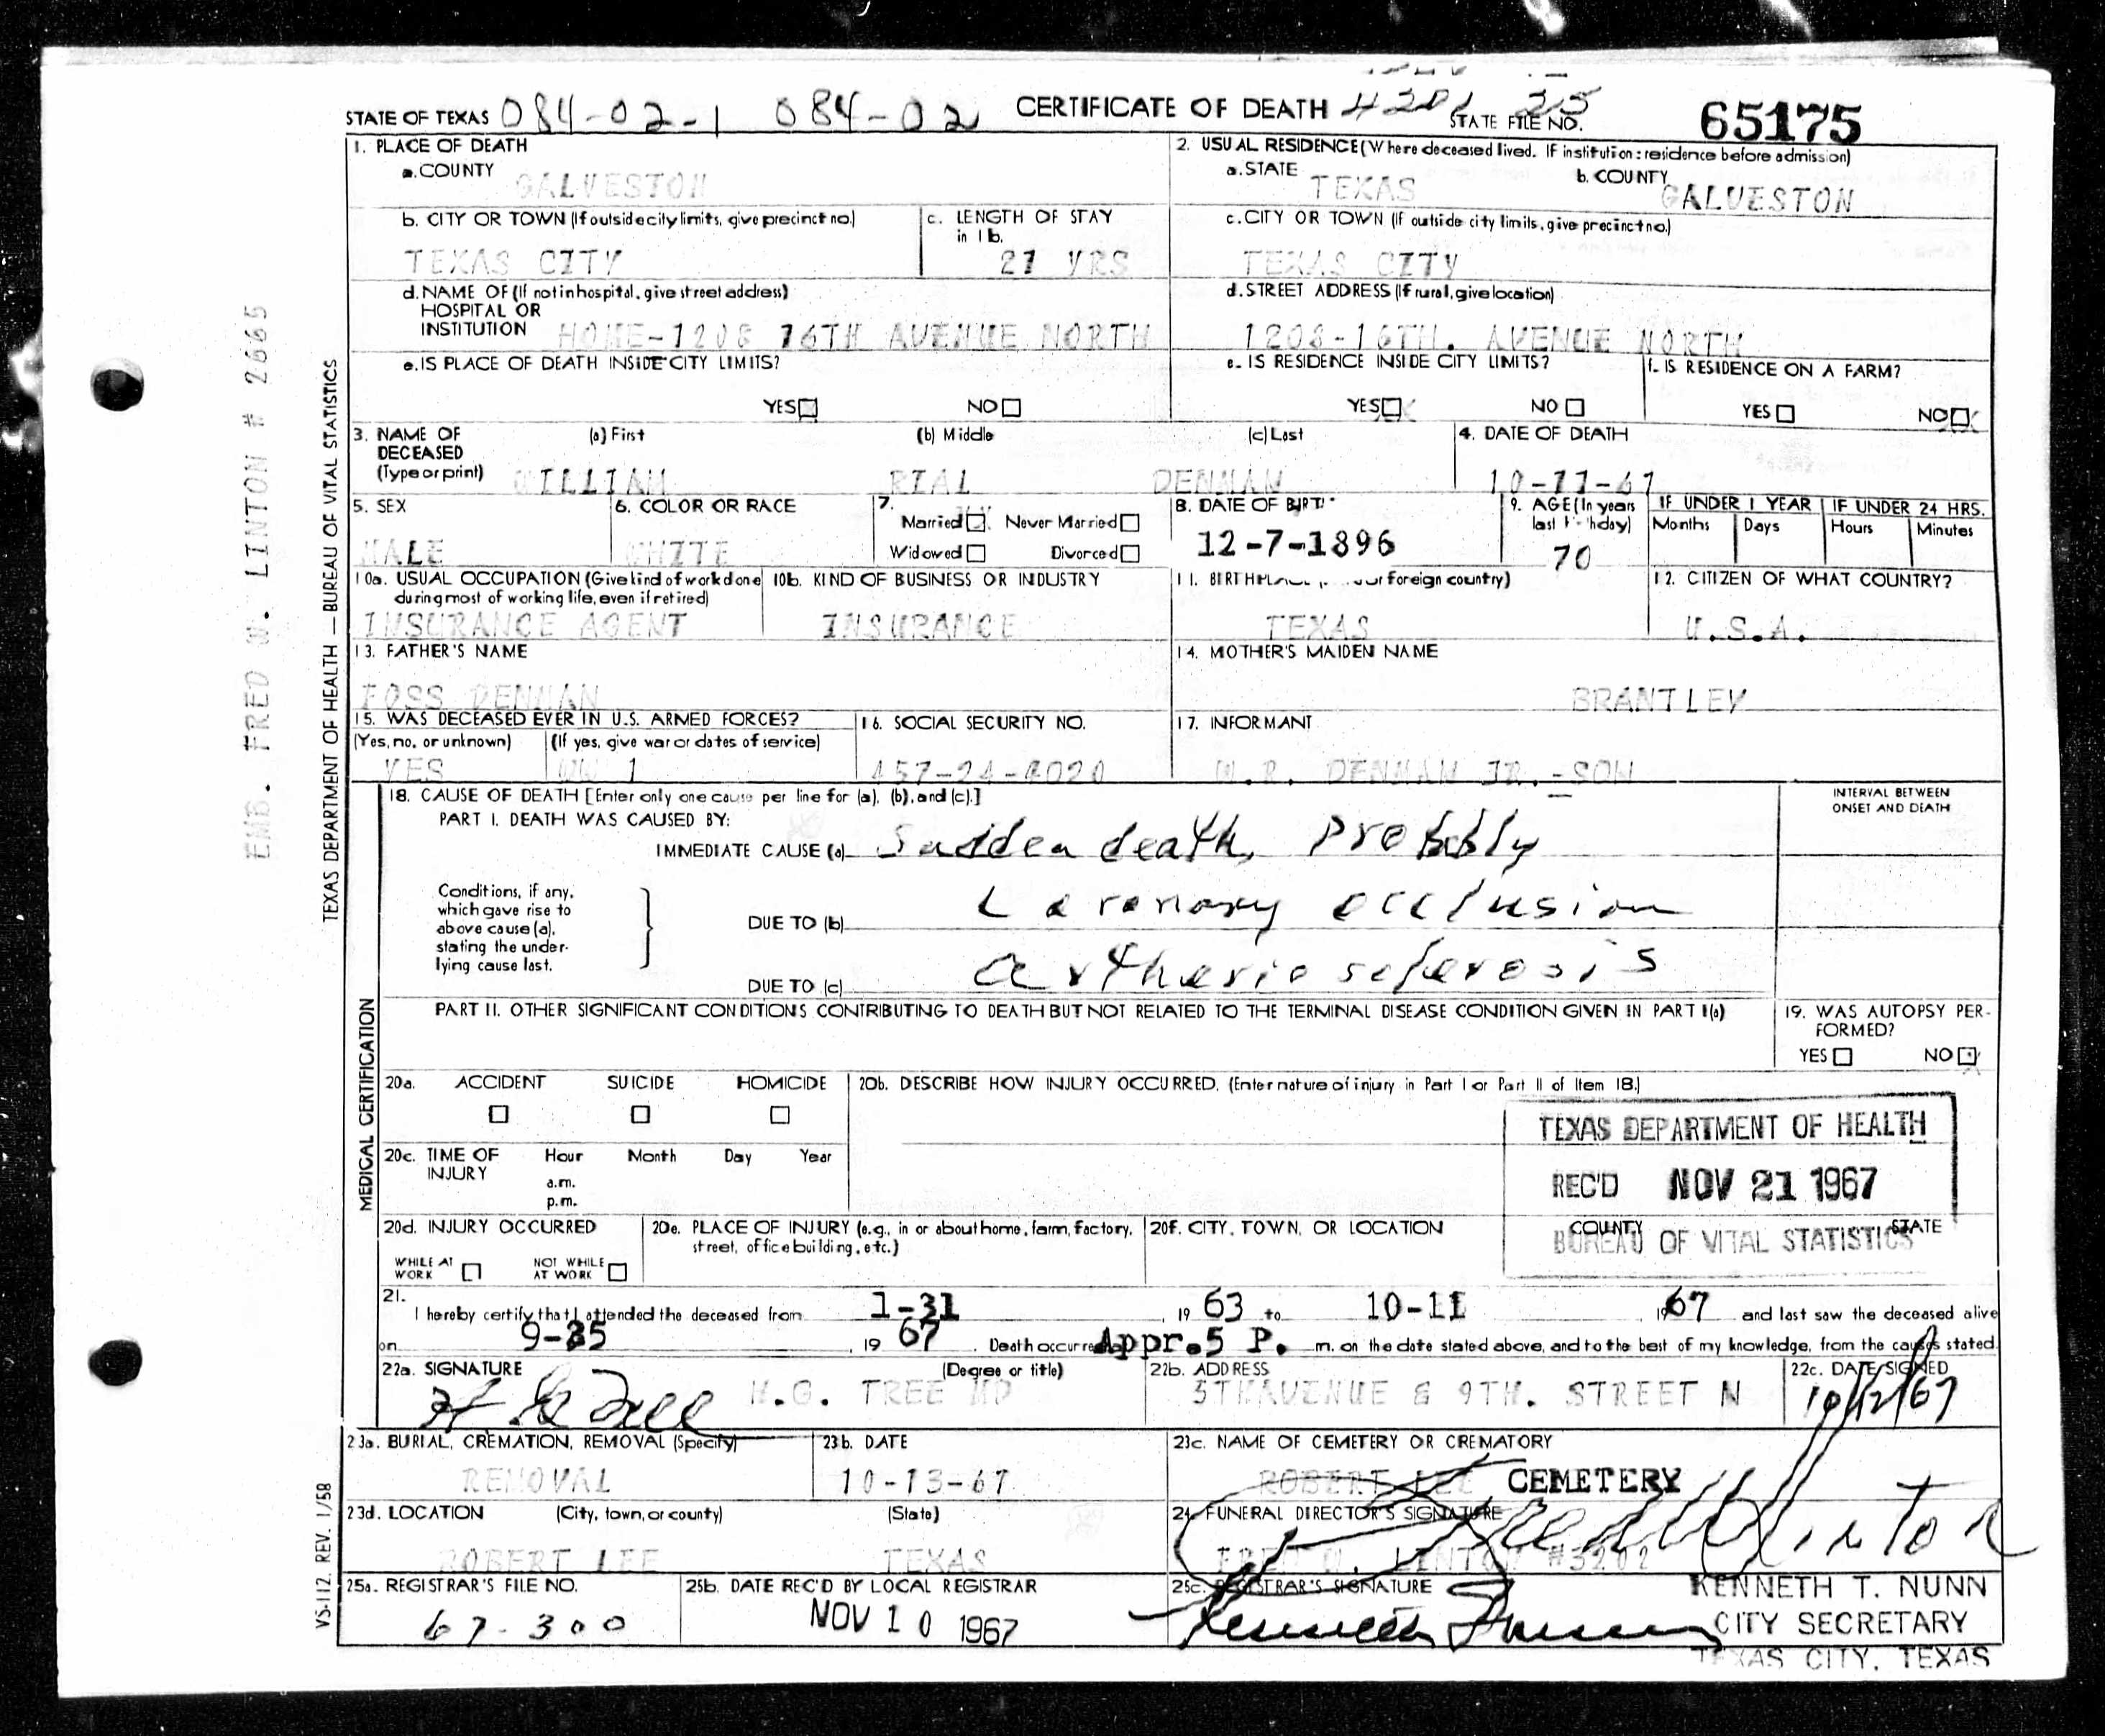 STATE OF TEXAS 084-02-1 084-02 CERTIFICATE OF DEATH 4201 25 STATE FILE NO. 65175
1. PLACE OF DEATH
a. COUNTY GALVESTON
2. USUAL RESIDENCE (Where deceased lived. If institution: residence before admission)
a. STATE TEXAS b. COUNTY GALVESTON
b. CITY OR TOWN (If outside city limits, give precinct no.)
TEXAS CITY
c. LENGTH OF STAY in 1b.
21 YRS
c. CITY OR TOWN (If outside city limits, give precinct no.)
TEXAS CITY
d. NAME OF (If not in hospital, give street address)
HOSPITAL OR
INSTITUTION HOME-1208 16TH AVENUE NORTH
d. STREET ADDRESS (If rural, give location)
1208-16TH. AVENUE NORTH
e. IS PLACE OF DEATH INSIDE CITY LIMITS?
YES NO
e. IS RESIDENCE INSIDE CITY LIMITS?
YES NO
f. IS RESIDENCE ON A FARM?
YES NO
3. NAME OF DECEASED (Type or print)
(a) First (b) Middle (c) Last
WILLIAM RIAL DENMAN
4. DATE OF DEATH
10-11-67
5. SEX
MALE
6. COLOR OR RACE
WHITE
7.
Married Never Married
Widowed Divorced
8. DATE OF BIRTH
12-7-1896
9. AGE (In years last birthday)
70
IF UNDER 1 YEAR
Months Days
IF UNDER 24 HRS.
Hours Minutes
10a. USUAL OCCUPATION (Give kind of work done
during most of working life, even if retired)
INSURANCE AGENT
10b. KIND OF BUSINESS OR INDUSTRY
INSURANCE
11. BIRTHPLACE or foreign country)
TEXAS
12. CITIZEN OF WHAT COUNTRY?
U.S.A.
13. FATHER'S NAME
FOSS DENMAN
14. MOTHER'S MAIDEN NAME
BRANTLEY
15. WAS DECEASED EVER IN U.S. ARMED FORCES?
(Yes, no, or unknown) (If yes, give war or dates of service)
YES WW 1
16. SOCIAL SECURITY NO.
457-24-4020
17. INFORMANT
W.R. DENMAN JR.-SON
MEDICAL CERTIFICATION
18. CAUSE OF DEATH [Enter only one cause per line for (a), (b), and (c).]
PART I. DEATH WAS CAUSED BY:
INTERVAL BETWEEN
ONSET AND DEATH
IMMEDIATE CAUSE (a) Sudden death, Probably
Conditions, if any,
which gave rise to
above cause (a),
stating the under-
lying cause last.
DUE TO (b) Coronary occlusion
DUE TO (c) artheriosclerosis
PART II. OTHER SIGNIFICANT CONDITIONS CONTRIBUTING TO DEATH BUT NOT RELATED TO THE TERMINAL DISEASE CONDITION GIVEN IN PART I(a)
19. WAS AUTOPSY PER-
FORMED?
YES NO
20a. ACCIDENT SUICIDE HOMICIDE
20b. DESCRIBE HOW INJURY OCCURRED. (Enter nature of injury in Part I or Part II of Item 18.)
TEXAS DEPARTMENT OF HEALTH
REC'D NOV 21 1967
BUREAU OF VITAL STATISTICS
20c. TIME OF INJURY
Hour Month Day Year
a.m.
p.m.
20d. INJURY OCCURRED
WHILE AT WORK NOT WHILE AT WORK
20e. PLACE OF INJURY (e.g., in or about home, farm, factory,
street, office building, etc.)
20f. CITY, TOWN, OR LOCATION COUNTY STATE
21.
I hereby certify that I attended the deceased from 1-31, 19 63 to 10-11 1967 and last saw the deceased alive
on 9-25, 19 67. Death occurred Appr.5 P. m. on the date stated above, and to the best of my knowledge, from the causes stated.
22a. SIGNATURE (Degree or title)
H G Tree H.G. TREE MD
22b. ADDRESS
5THAVENUE & 9TH. STREET N
22c. DATE SIGNED
10/12/67
23a. BURIAL, CREMATION, REMOVAL (Specify)
REMOVAL
23b. DATE
10-13-67
23c. NAME OF CEMETERY OR CREMATORY
ROBERT LEE CEMETERY
23d. LOCATION (City, town, or county) (State)
ROBERT LEE TEXAS
24. FUNERAL DIRECTOR'S SIGNATURE
Fred W Linton
FRED W. LINTON #3202
25a. REGISTRAR'S FILE NO.
67-300
25b. DATE REC'D BY LOCAL REGISTRAR
NOV 10 1967
25c. REGISTRAR'S SIGNATURE
Kenneth T Nunn
KENNETH T. NUNN
CITY SECRETARY
TEXAS CITY, TEXAS
EMB. FRED W. LINTON # 2665
TEXAS DEPARTMENT OF HEALTH — BUREAU OF VITAL STATISTICS
VS-112 REV. 1/58